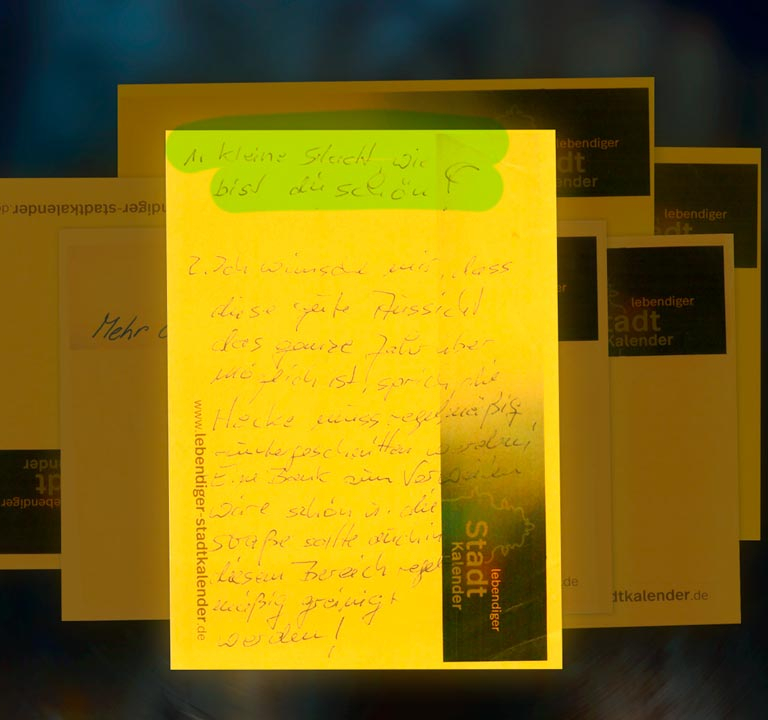 1. kleine Stadt, wie
bist du schön!
2. Ich wünsche mir, dass
diese gute Aussicht
das ganze Jahr über
möglich ist, sprich die
Hecke muss regelmäßig
runtergeschnitten werden!
Eine Bank zum Verweilen
wäre schön u. die
Straße sollte auch in
diesem Bereich regel
mäßig gereinigt
werden!
www.lebendiger-stadtkalender.de
lebendiger
Stadt
Kalender
lebendiger
dt
alender
lebendiger
dt
lebendiger
tadt
Kalender
diger-stadtkalender.de
Mehr
lebendiger
dt
Kalender
de
dtkalender.de